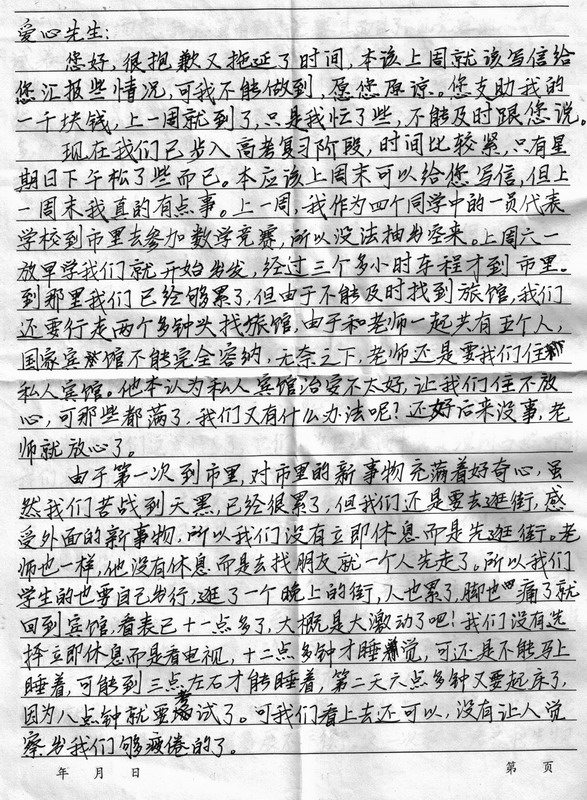 爱心先生:
您好,很抱歉又拖延了时间,本该上周就该写信给
您汇报些情况,可我不能做到,愿您原谅。您支助我的
一千块钱,上一周就到了,只是我忙了些,不能及时跟您说。
现在我们已步入高考复习阶段,时间比较紧,只有星
期日下午松了些而已。本应该上周末可以给您写信,但上
一周末我真的有点事。上一周,我作为四个同学中的一员代表
学校到市里去参加数学竞赛,所以没法抽出空来。上周六一
放早学我们就开始出发,经过三个多小时车程才到市里。
到那里我们已经够累了,但由于不能及时找到旅馆,我们
还要行走两个多钟头找旅馆,由于和老师一起共有五个人,
国家宾馆不能完全容纳,无奈之下,老师还是要我们住
私人宾馆。他本认为私人宾馆治安不太好,让我们住不放
心,可那些都满了,我们又有什么办法呢?还好后来没事,老
师就放心了。
由于第一次到市里,对市里的新事物充满着好夺心,虽
然我们苦战到天黑,已经很累了,但我们还是要去逛街,感
受外面的新事物,所以我们没有立即休息而是先逛街。老
师也一样,他没有休息而是去找朋友就一个人先走了。所以我们
学生的也要自己出行,逛了一个晚上的街,人也累了,脚也痛了就
回到宾馆,看表已十一点多了,大概是大激动了吧!我们没有选
择立即休息而是看电视,十二点多钟才睡觉,可还是不能马上
睡着,可能到三点左右才能睡着,第二天六点多钟又要起床了,
因为八点钟就要考试了。可我们看上去还可以,没有让人觉
察出我们够疲倦的了。
年 月 日 第 页